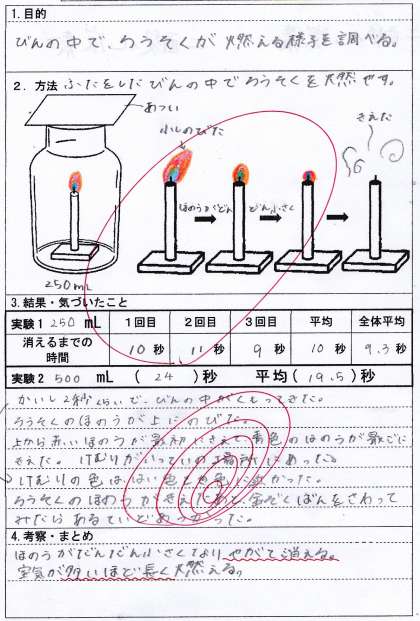 1.目的
びんの中で、ろうそくが燃える様子を調べる。
2．方法 ふたをしたびんの中でろうそくを燃やす。
あつい
少しのびた
きえた
ほのうがどん
どん小さく
250mL
3.結果・気づいたこと
実験1 250 mL １回目 ２回目 ３回目 平均 全体平均
消えるまでの時間 10秒 11秒 9秒 10秒 9.3秒
実験2 500 mL （ 24 ）秒 平均（ 19.5 ）秒
かいし2秒くらいで、びんの中がくもってきた。
ろうそくのほのうが上にのびた。
上から赤いほのうが最初にきえて青色のほのうが最ごに
きえた。けむりがいっていの場所にあった。
けむりの色ははい色と白色に近かった。
ろうそくのほのうがきえたあと金ぞくばんをさわって
みたらあるていどあつかった。
4.考察・まとめ
ほのうがだんだん小さくなりやがて消える。
空気が多いほど長く燃える。